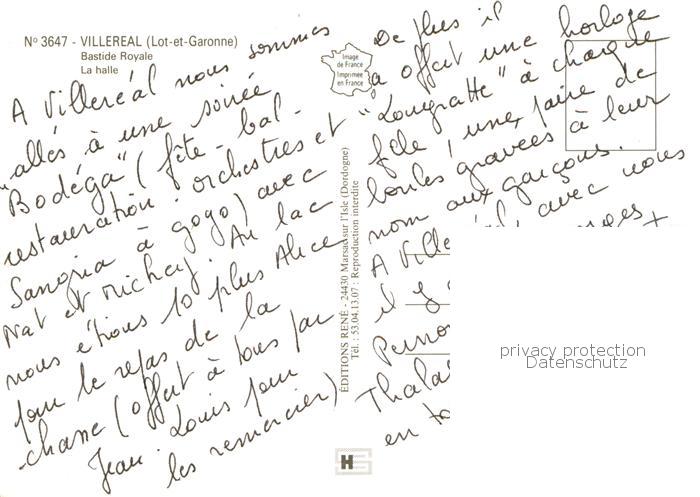 N° 3647 - VILLEREAL (Lot-et-Garonne)
Bastide Royale
La halle
Image
de France
Imprimée
en France
A Villeréal nous sommes
allés à une soirée
"Bodéga" (fête - bal -
restauration : orchestres et
Sangria à gogo) avec
Nat et Michey. Au lac
nous étions 10 plus Alice
pour le repas de la
chasse (offert à tous par
Jean-Louis pour
les remercier)
ÉDITIONS RENÉ - 24430 Marsac sur l'Isle (Dordogne)
Tél. : 53.04.13.07 : Reproduction interdite
De plus il
a offert une horloge
"Lougratte" à chaque
fille, une paire de
boules gravées à leur
nom aux garçons.
A Ville avec nous
il y
Perno
Thala
en to
privacy protection
Datenschutz
H